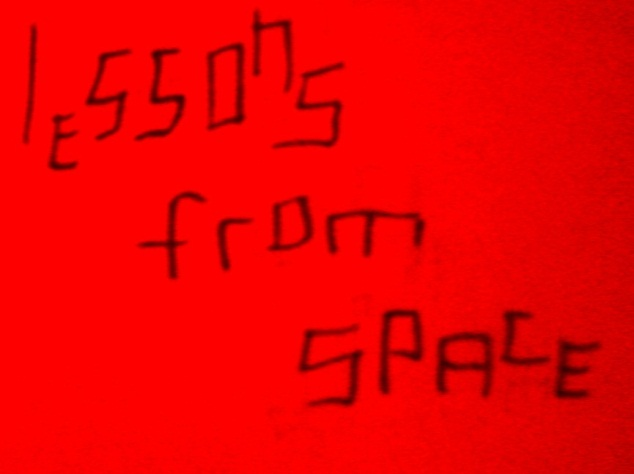 lEssons
from
SPACE